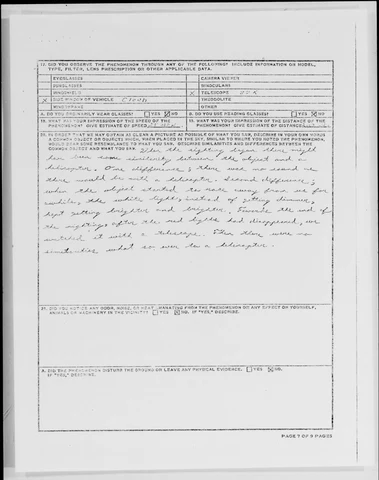 17. DID YOU OBSERVE THE PHENOMENON THROUGH ANY OF THE FOLLOWING? INCLUDE INFORMATION ON MODEL,
TYPE, FILTER, LENS PRESCRIPTION OR OTHER APPLICABLE DATA.
EYEGLASSES CAMERA VIEWER
SUNGLASSES BINOCULARS
WINDSHIELD X TELESCOPE
X SIDE WINDOW OF VEHICLE THEODOLITE
WINDOWPANE OTHER
A. DO YOU ORDINARILY WEAR GLASSES? YES NO B. DO YOU USE READING GLASSES? YES NO
18. WHAT WAS YOUR IMPRESSION OF THE SPEED OF THE 19. WHAT WAS YOUR IMPRESSION OF THE DISTANCE OF THE
PHENOMENON? GIVE ESTIMATE OF SPEED PHENOMENON? GIVE ESTIMATE OF DISTANCE
20. IN ORDER THAT WE MAY OBTAIN AS CLEAR A PICTURE AS POSSIBLE OF WHAT YOU SAW, DESCRIBE IN YOUR OWN WORDS
A COMMON OBJECT OR OBJECTS WHICH, WHEN PLACED IN THE SKY, SIMILAR TO WHERE YOU NOTED THE PHENOMENON,
WOULD BEAR SOME RESEMBLANCE TO WHAT YOU SAW. DESCRIBE SIMILARITIES AND DIFFERENCES BETWEEN THE
COMMON OBJECT AND WHAT YOU SAW. When the sighting began there might
have been some similarity between the object and a
helicopter. One difference; there was no sound as
there would be with a helicopter. Second difference;
when the object started to move away from us for
awhile, the white light, instead of getting dimmer,
kept getting brighter and brighter. Towards the end of
the sighting, after the red lights had disappeared, we
watched it with a telescope. Then there were no
similarities what so ever to a helicopter.
21. DID YOU NOTICE ANY ODOR, NOISE, OR HEAT EMANATING FROM THE PHENOMENON OR ANY EFFECT ON YOURSELF,
ANIMALS OR MACHINERY IN THE VICINITY? YES NO. IF "YES," DESCRIBE.
A. DID THE PHENOMENON DISTURB THE GROUND OR LEAVE ANY PHYSICAL EVIDENCE. YES NO
IF "YES," DESCRIBE.
PAGE 7 OF 9 PAGES